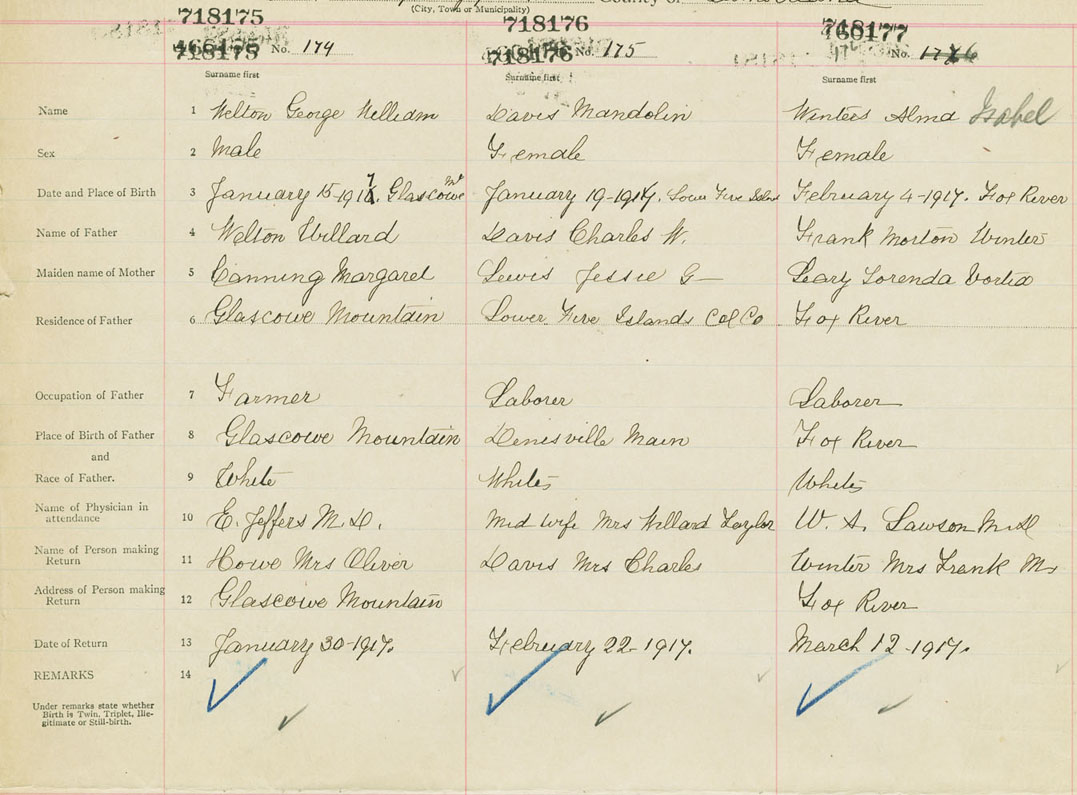 County of
(City, Town or Municipality)
718175 718176 768177
468175 No. 174 718176 No. 175 No. 176
Surname first Surname first Surname first
Name 1 Welton George William Davis Mandolin Winters Alma Isabel
Sex 2 Male Female Female
Date and Place of Birth 3 January 15-1917. Glascowe Mt January 19-1917. Lower Five Island February 4-1917. Fox River
Name of Father 4 Welton Willard Davis Charles W. Frank Morton Winter
Maiden name of Mother 5 Canning Margaret Lewis Jessie G Leary Lorenda
Residence of Father 6 Glascowe Mountain Lower Five Islands Col Co Fox River
Occupation of Father 7 Farmer Laborer Laborer
Place of Birth of Father 8 Glascowe Mountain Denisville Main Fox River
and
Race of Father. 9 White White White
Name of Physician in attendance 10 E. Jeffers M.D. Mid wife Mrs Willard Taylor W. A. Lawson M.D
Name of Person making Return 11 Howe Mrs Oliver Davis Mrs Charles Winter Mrs Frank M
Address of Person making Return 12 Glascowe Mountain Fox River
Date of Return 13 January 30-1917. February 22-1917. March 12-1917.
REMARKS 14
Under remarks state whether
Birth is Twin, Triplet, Ille-
gitimate or Still-birth.